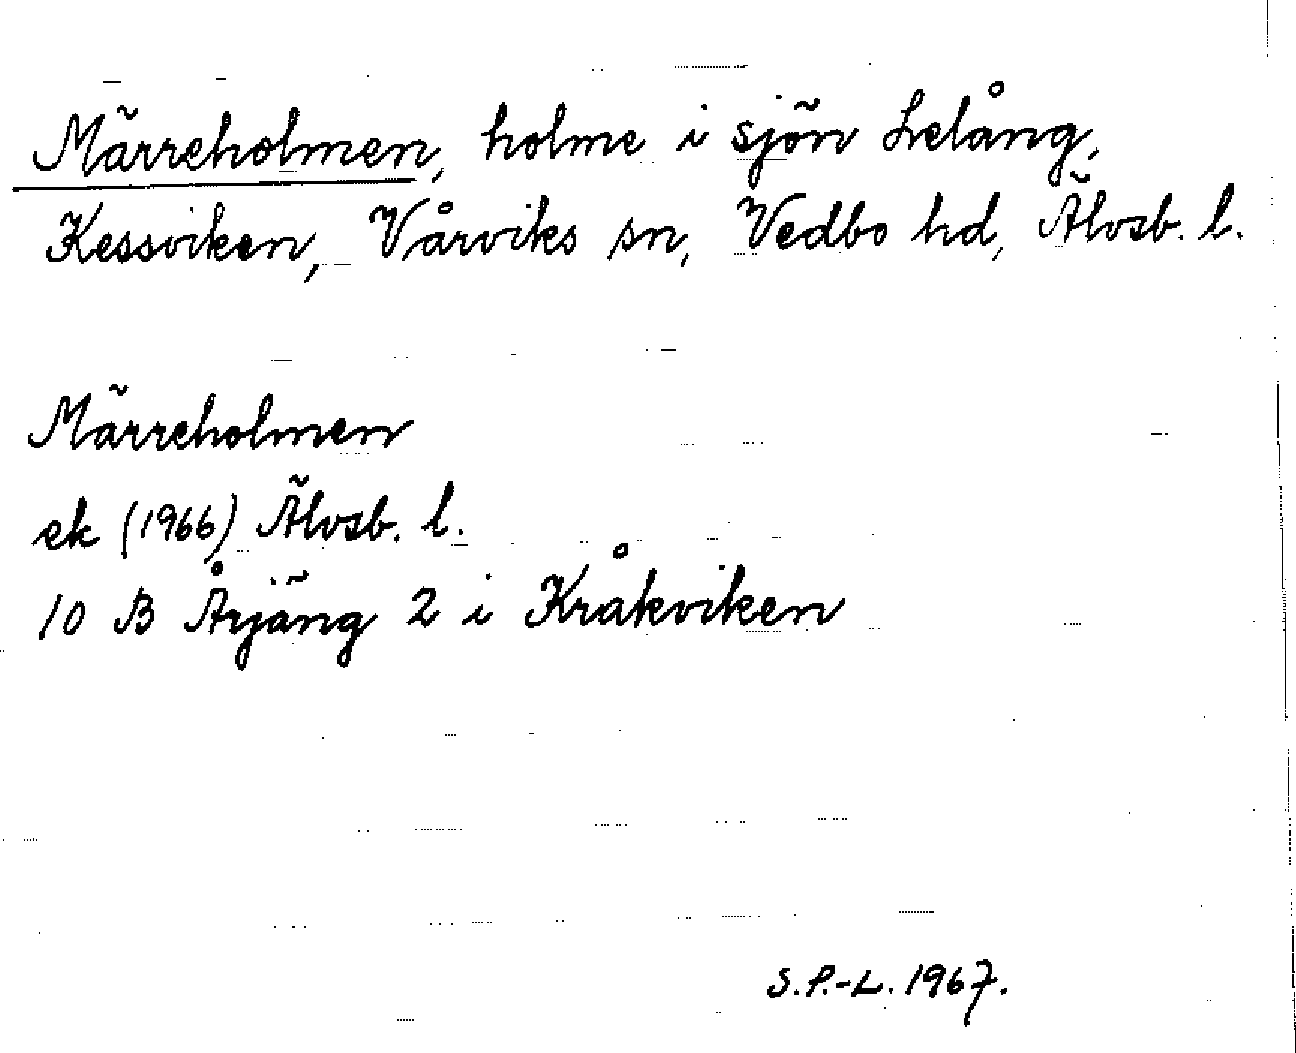 Märreholmen, holme i sjön Lelång,
Kessviken, Vårviks sn, Vedbo hd, Älvsb. l.
Märreholmen
ek (1966) Älvsb. l.
10 B Årjäng 2 i Kråkviken
S.P.-L. 1967.